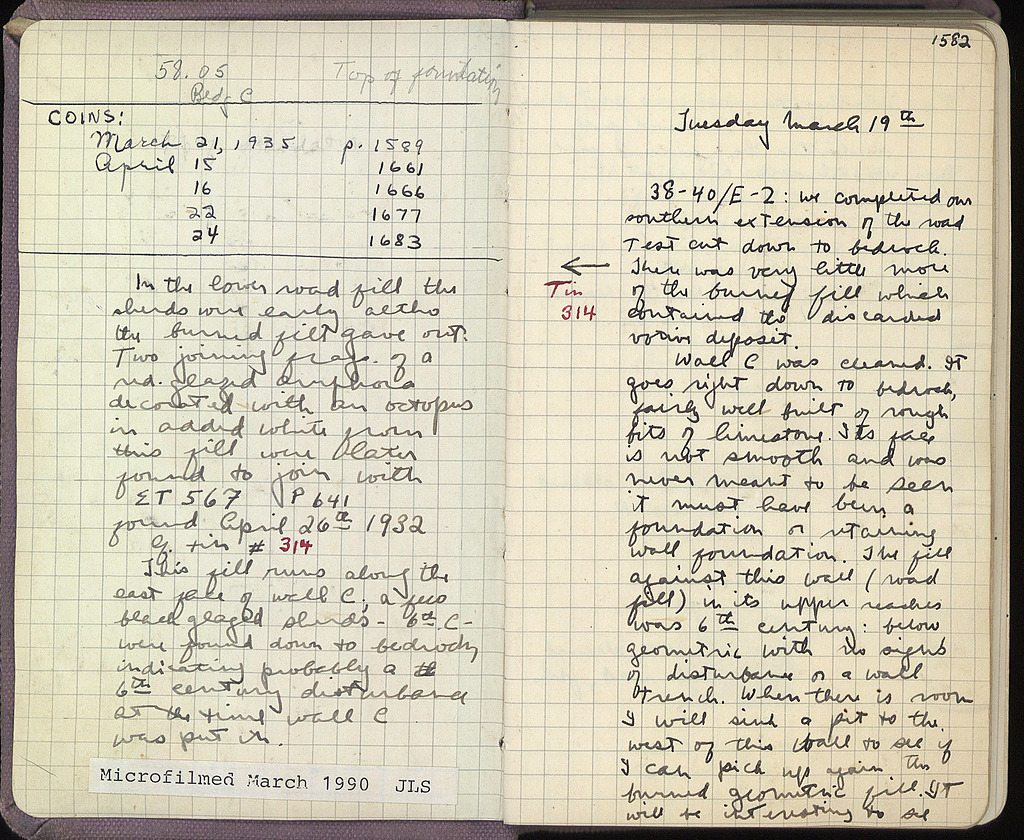 58.05 Top of foundation
Bldg C
COINS:
March 21, 1935 p. 1589
April 15 1661
16 1666
22 1677
24 1683
In the lower road fill the
sherds were early altho
the burned filt gave out.
Two joining frags. of a
rd. glazed amphora
decorated with an octopus
in added white from
this fill were later
found to join with
ET 567 P 641
found April 26th 1932
G. tin # 314
This fill runs along the
east face of wall C; a few
black glazed sherds - 6th C -
were found down to bedrock
indicating probably a
6th century disturbance
at the time wall C
was put in.
Microfilmed March 1990 JLS
1582
Tuesday March 19th
38-40/E-2: we completed our
southern extension of the road
Test cut down to bedrock.
There was very little more
of the burned fill which
contained the discarded
votive deposit.
Tin
314
Wall C was cleaned. It
goes right down to bedrock,
fairly well built of rough
bits of limestone. Its face
is not smooth and was
never meant to be seen
it must have been a
foundation or retaining
wall foundation. The fill
against this wall (road
fill) in its upper reaches
was 6th century: below
geometric with no signs
of disturbance or a wall
trench. When there is room
I will sink a pit to the
west of this wall to see if
I can pick up again the
burned geometric fill. It
will be interesting to see